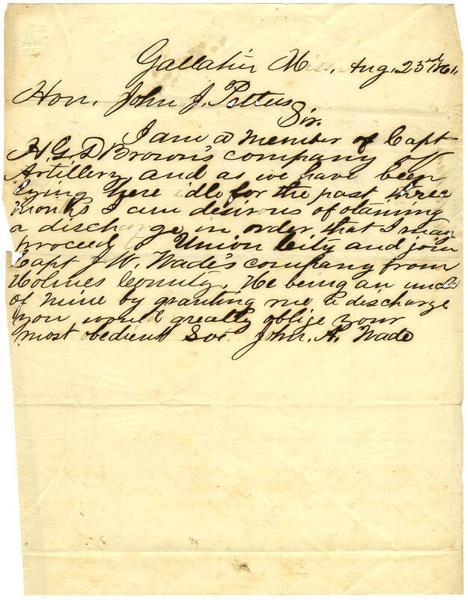 Gallatin Miss, Aug. 25th 1861.
Hon. John J. Pettus
Sir.
I am a member of Capt
H. G. D Brown's company of
Artillery and as we have been
lying here idle for the past three
months I am desirous of obtaining
a discharge in order that I may
proceed to Union City and join
Capt J W. Wade's company from
Holmes County. He being an uncle
of mine by granting me a discharge
you would greatly oblige your
most obedient Svt John. A. Wade